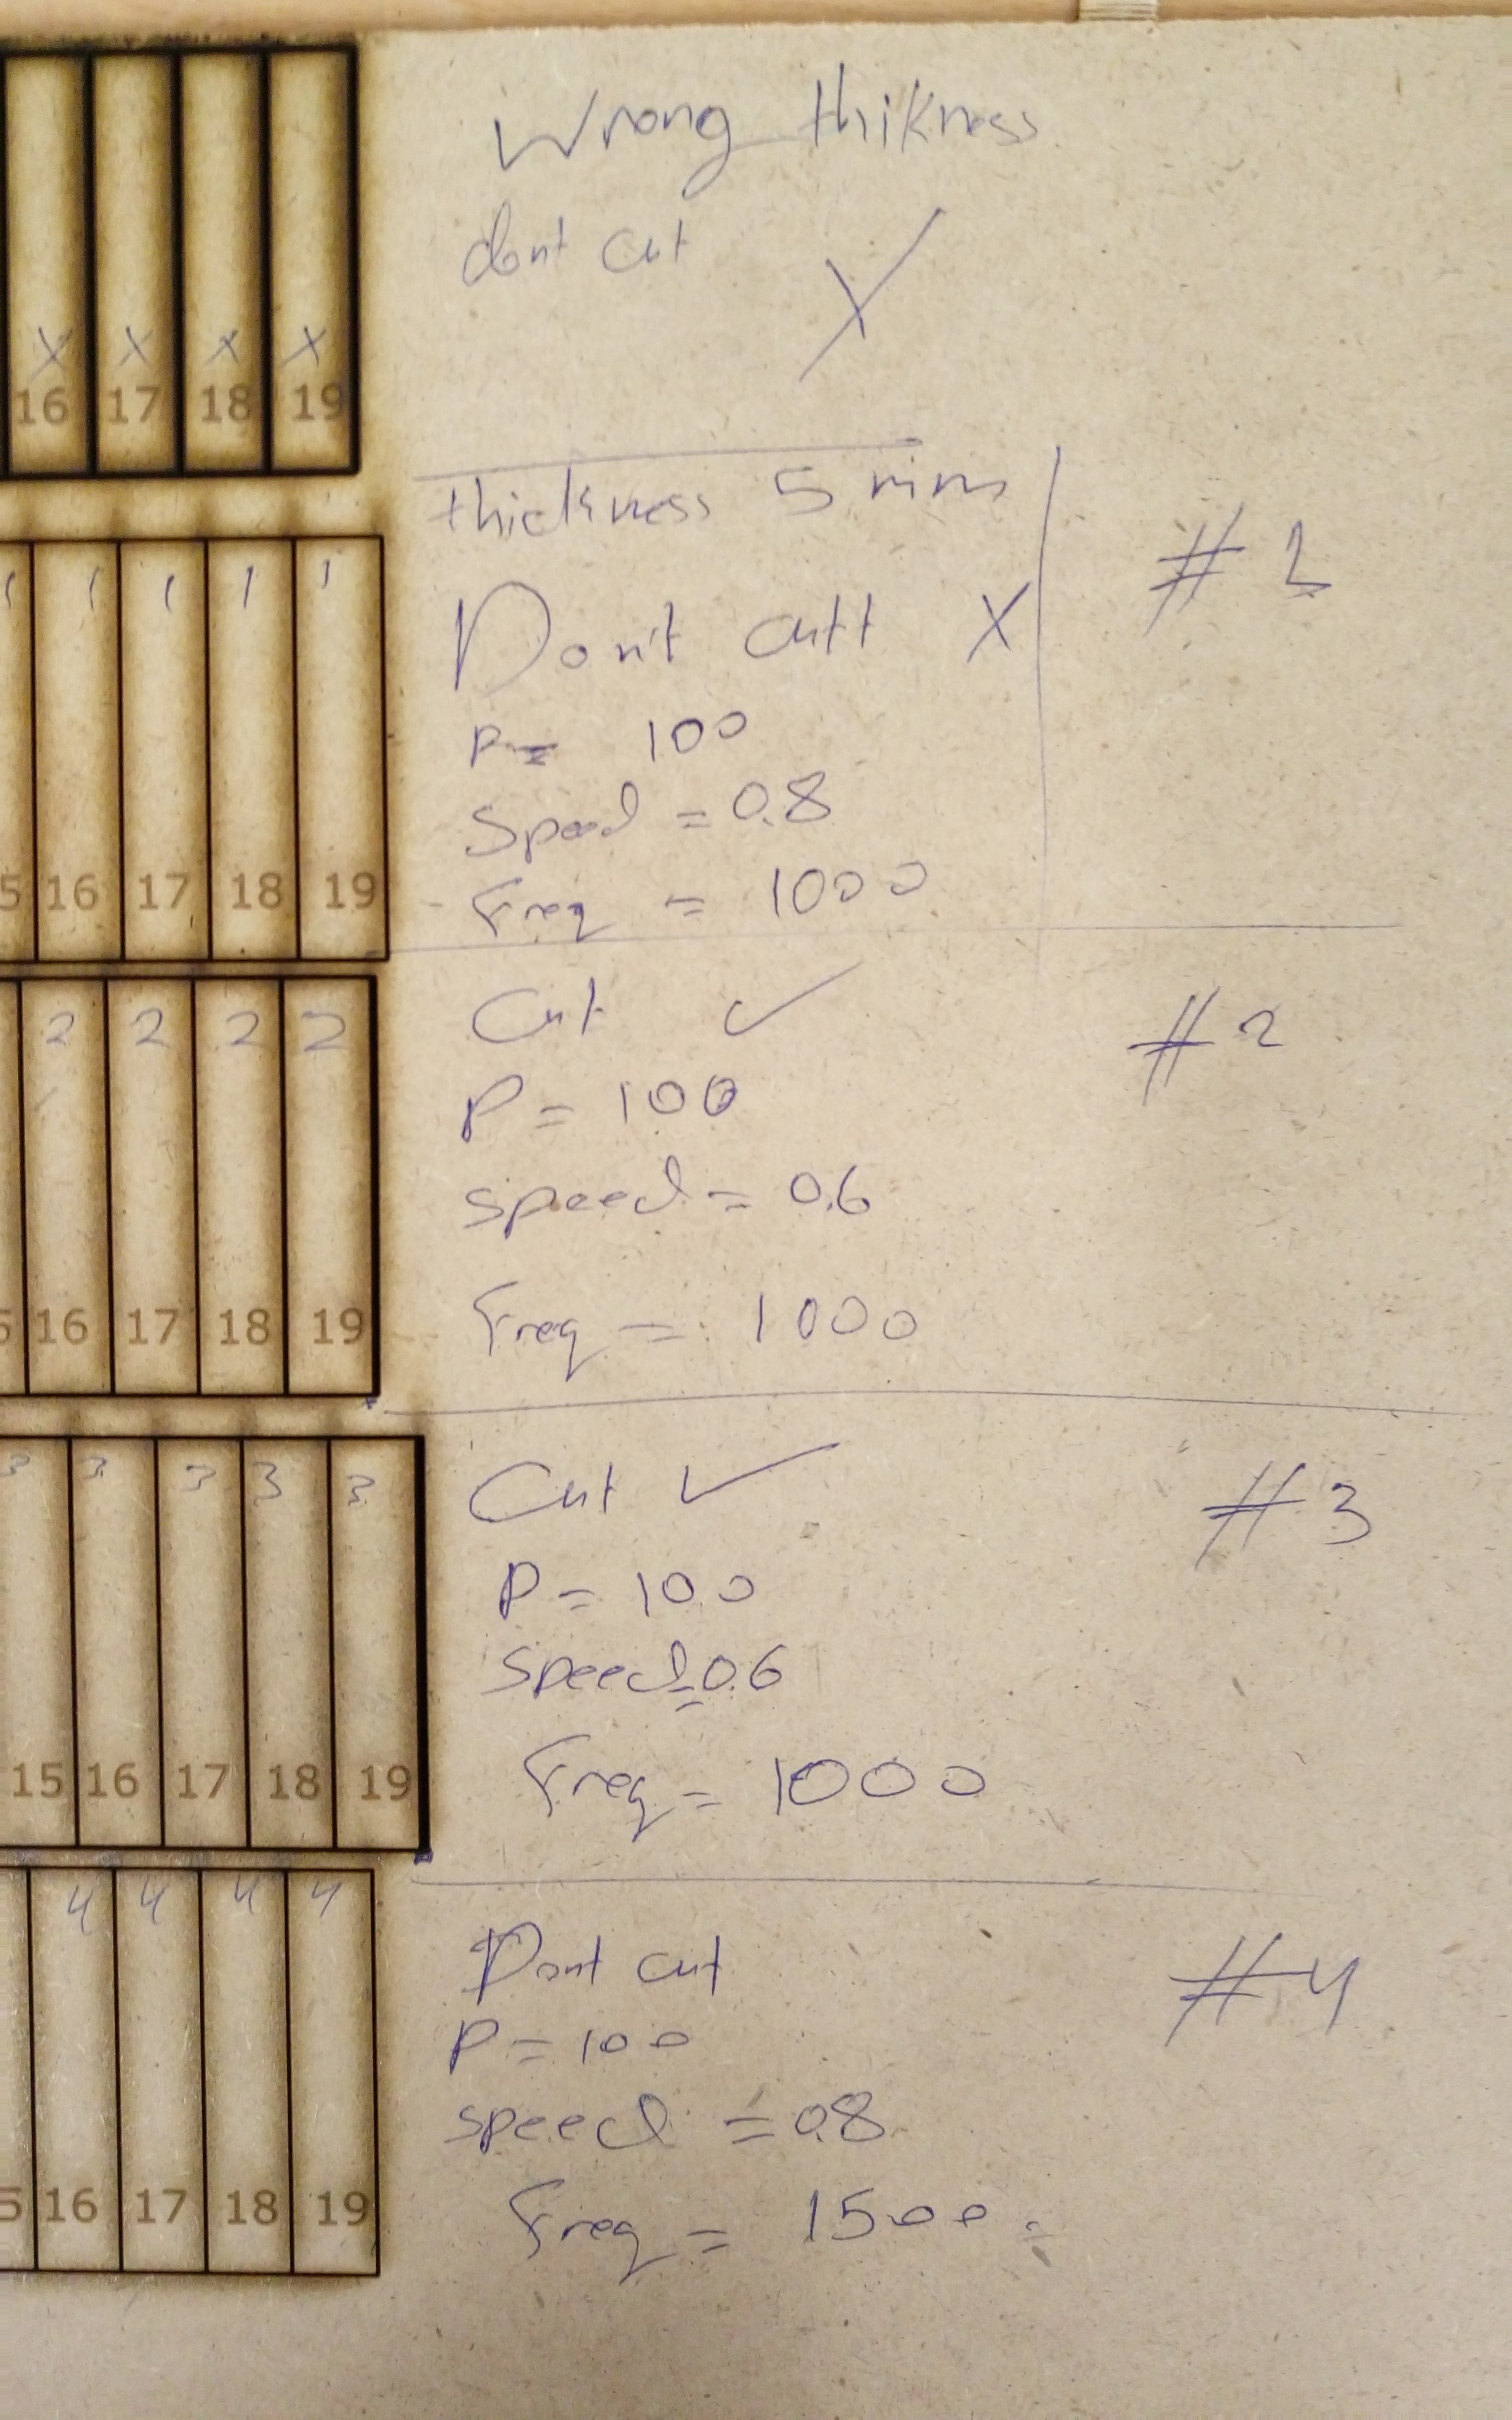 Wrong thikness
dont cut X
X X X X
16 17 18 19
thickness 5 mm
# 1
1 1 1 1 1
Don't cutt X
P= 100
Speed = 0.8
5 16 17 18 19
Freq = 1000
Cut ✓
# 2
2 2 2 2
P = 100
speed = 0.6
5 16 17 18 19
Freq = 1000
Cut ✓
# 3
3 3 3 3 3
P = 100
Speed = 0.6
15 16 17 18 19
Freq = 1000
4 4 4 4
Dont cut
# 4
P = 100
speed = 0.8
5 16 17 18 19
Freq = 1500